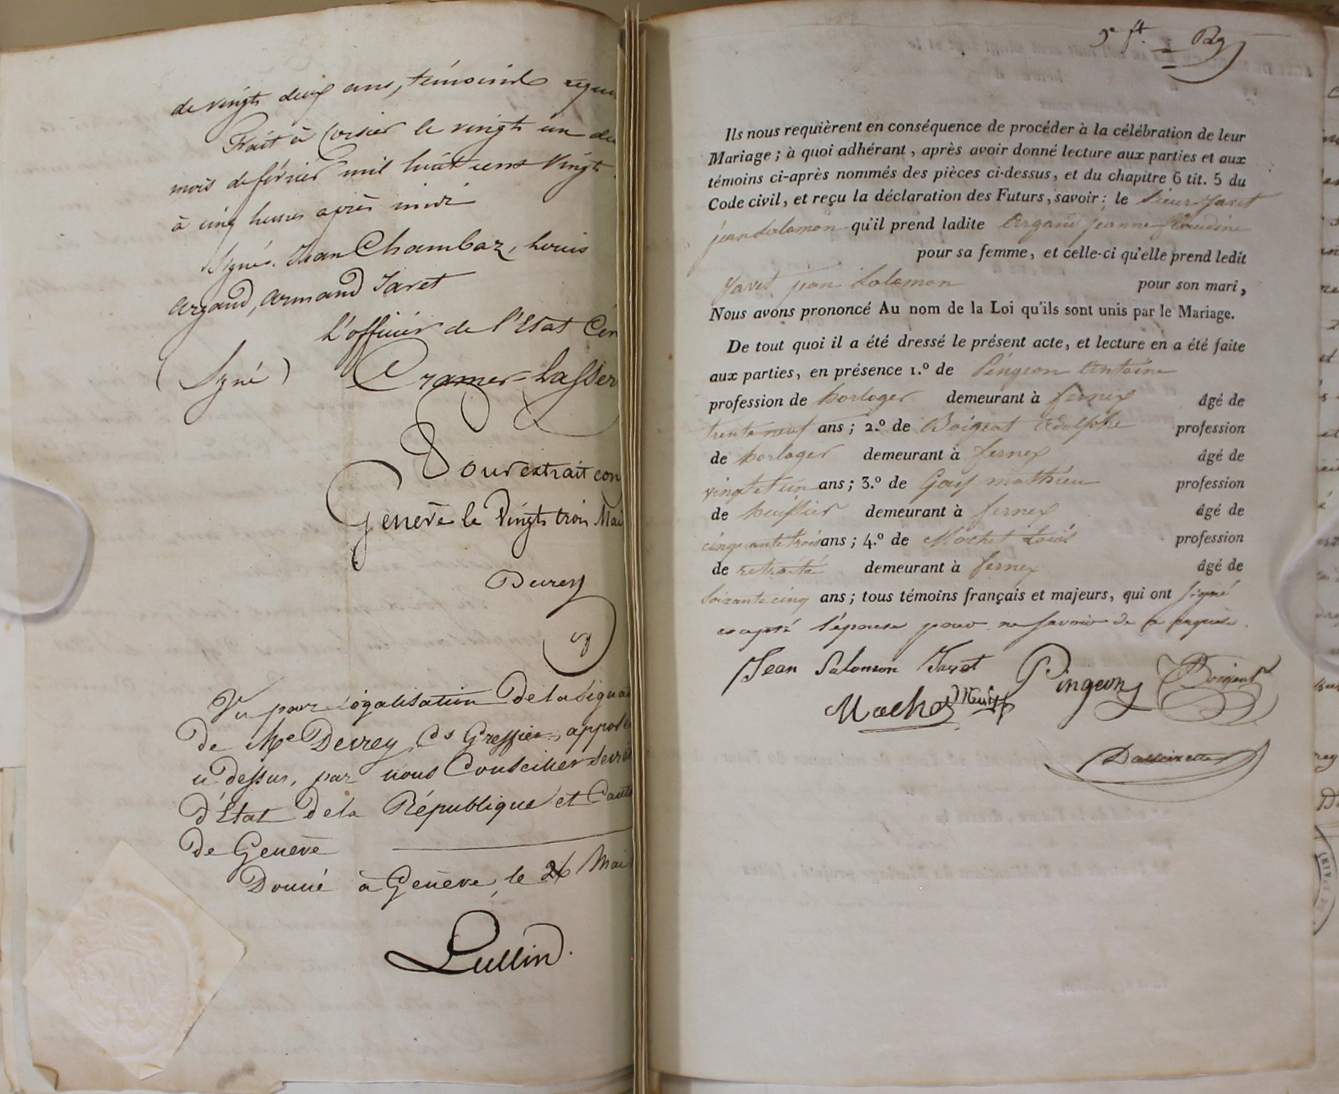 de vingt deux ans, témoins
Fait à Corsier le vingt un du
mois de février mil huit cent vingt
à cinq heures après midi
Signé. Jean Chambaz, Louis
Argand, Armand Javet
L'officier de l'Etat
(Signé) Cramer-
Pour extrait con
Genève le Vingt trois Mai
Vu pour légalisation de la Signa
de Me
ci dessus, par nous Conseiller Secré
d'État de la République et Canton
de Genève
Donné à Genève, le 26 Mai
Lullin
5e ft. Rg
Ils nous requièrent en conséquence de procéder à la célébration de leur
Mariage ; à quoi adhérant, après avoir donné lecture aux parties et aux
témoins ci-après nommés des pièces ci-dessus, et du chapitre 6 tit. 5 du
Code civil, et reçu la déclaration des Futurs, savoir : le Sieur Javet
jean Salomon qu'il prend ladite Argand jeanne Claudine
pour sa femme, et celle-ci qu'elle prend ledit
Javet jean Salomon pour son mari,
Nous avons prononcé Au nom de la Loi qu'ils sont unis par le Mariage.
De tout quoi il a été dressé le présent acte, et lecture en a été faite
aux parties, en présence 1.º de Pingeon Antoine
profession de horloger demeurant à fernex âgé de
trente neuf ans ; 2.º de Boigeat Adolphe profession
de horloger demeurant à fernex âgé de
vingt et un ans ; 3.º de Gay mathieu profession
de huissier demeurant à fernex âgé de
cinquante trois ans ; 4.º de Mochet Louis profession
de retraité demeurant à fernex âgé de
Soixante cinq ans ; tous témoins français et majeurs, qui ont signé
excepté l'épouse pour ne savoir de ce requise.
Jean Salomon Javet Pingeon